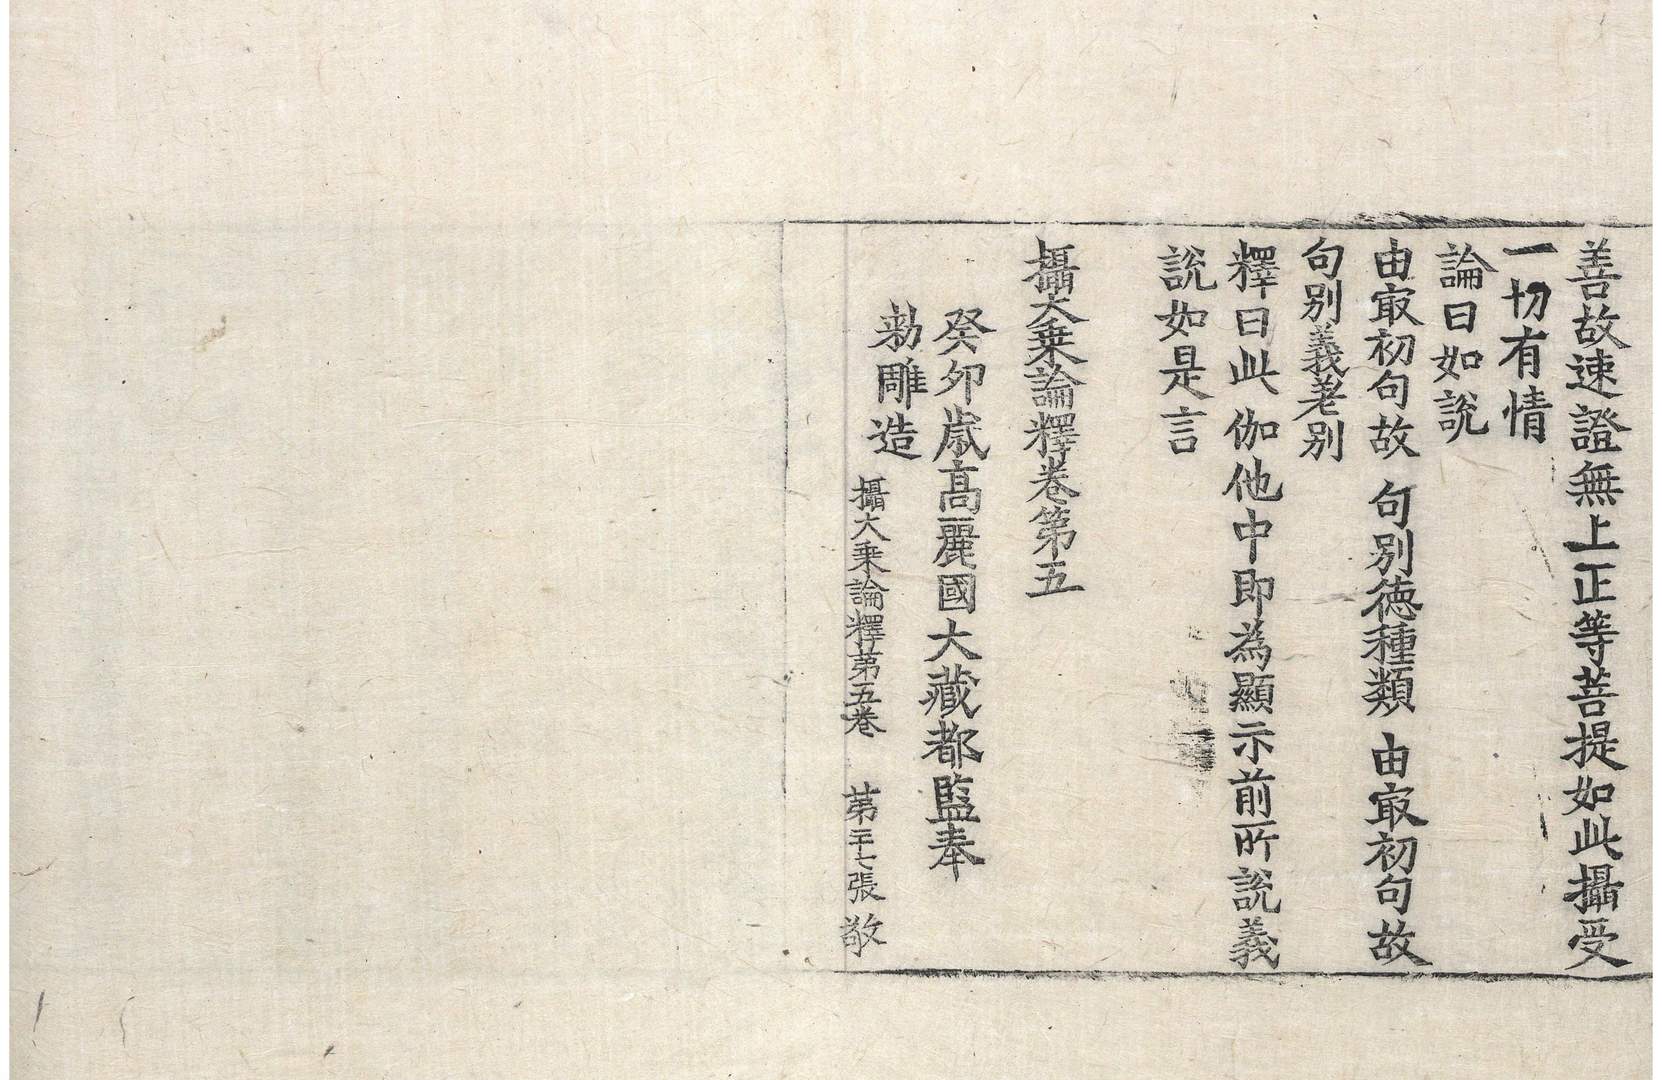 善故速證無上正等菩提如此攝受
一切有情
論曰如說
由㝡初句故 句別德種類 由㝡初句故
句別義差別
釋曰此伽他中即為顯示前所說義
說如是言
攝大乗論釋卷第五
癸卯歲高麗國大藏都監奉
勅雕造
攝大乗論釋第五卷 第二十七張 敬